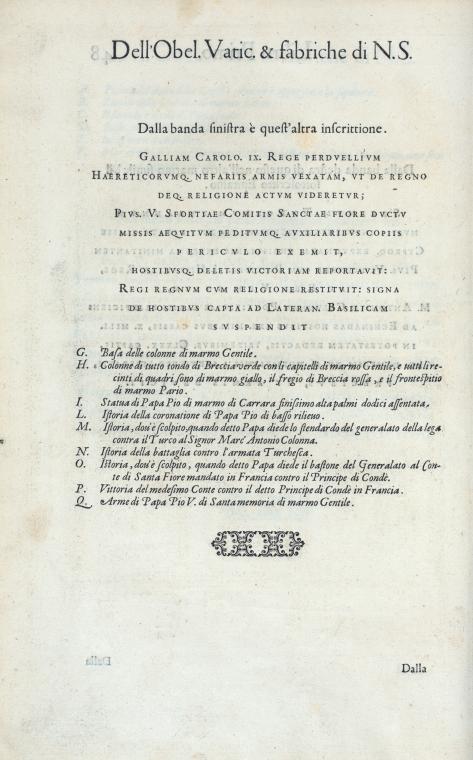 Dell'Obel. Vatic. & fabriche di N.S.
Dalla banda sinistra è quest'altra inscrittione.
GALLIAM CAROLO. IX. REGE PERDVELLIVM
HAERETICORVMQ. NEFARIIS ARMIS VEXATAM, VT DE REGNO
DEQ. RELIGIONE ACTVM VIDERETVR;
PIVS. V. SFORTIAE COMITIS SANCTAE FLORE DVCTV
MISSIS AEQVITVM PEDITVMQ. AVXILIARIBVS COPIIS
PERICVLO EXEMIT,
HOSTIBVSQ. DELETIS VICTORIAM REPORTAVIT:
REGI REGNVM CVM RELIGIONE RESTITVIT: SIGNA
DE HOSTIBVS CAPTA AD LATERAN. BASILICAM
SVSPENDIT
G. Basa delle colonne di marmo Gentile.
H. Colonne di tutto tondo di Breccia verde con li capitelli di marmo Gentile, e tutti li re-
cinti di quadri sono di marmo giallo, il fregio di Breccia rossa, e il frontespitio
di marmo Pario.
I. Statua di Papa Pio di marmo di Carrara finissimo alta palmi dodici assentata.
L. Istoria della coronatione di Papa Pio di basso rilieuo.
M. Istoria, dou'è scolpito, quando detto Papa diede lo stendardo del generalato della lega
contra il Turco al Signor Marc' Antonio Colonna.
N. Istoria della battaglia contro l'armata Turchesca.
O. Istoria, dou'è scolpito, quando detto Papa diede il bastone del Generalato al Con-
te di Santa Fiore mandato in Francia contro il Principe di Condè.
P. Vittoria del medesimo Conte contro il detto Principe di Condè in Francia.
Q. Arme di Papa Pio V. di Santa memoria di marmo Gentile.
Dalla